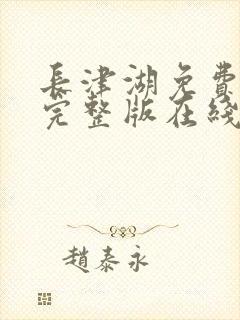 長津湖免費
完整版在綫
趙泰永